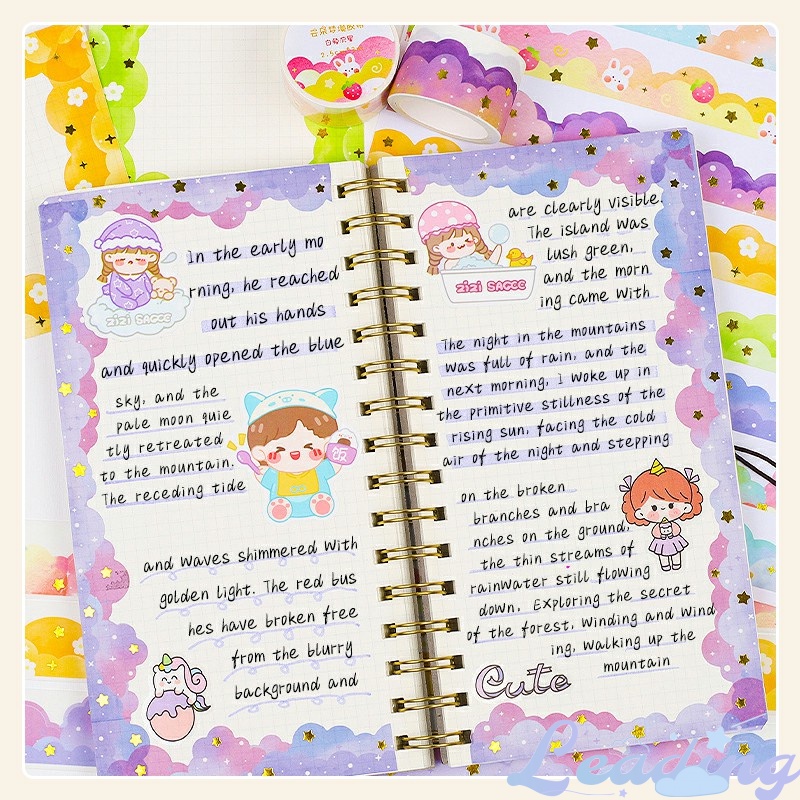 云朵梦境胶带
In the early mo
rning, he reached
out his hands
and quickly opened the blue
sky, and the
pale moon quie
tly retreated
to the mountain.
The receding tide
and waves shimmered with
golden light. The red bus
hes have broken free
from the blurry
background and
zizi SAGCC
饭
are clearly visible.
The island was
lush green,
and the morn
ing came with
zizi SAGCC
The night in the mountains
was full of rain, and the
next morning, I woke up in
the primitive stillness of the
rising sun, facing the cold
air of the night and stepping
on the broken
branches and bra
nches on the ground,
the thin streams of
rainwater still flowing
down. Exploring the secret
of the forest, winding and wind
ing, walking up the
mountain
Cute
Leading